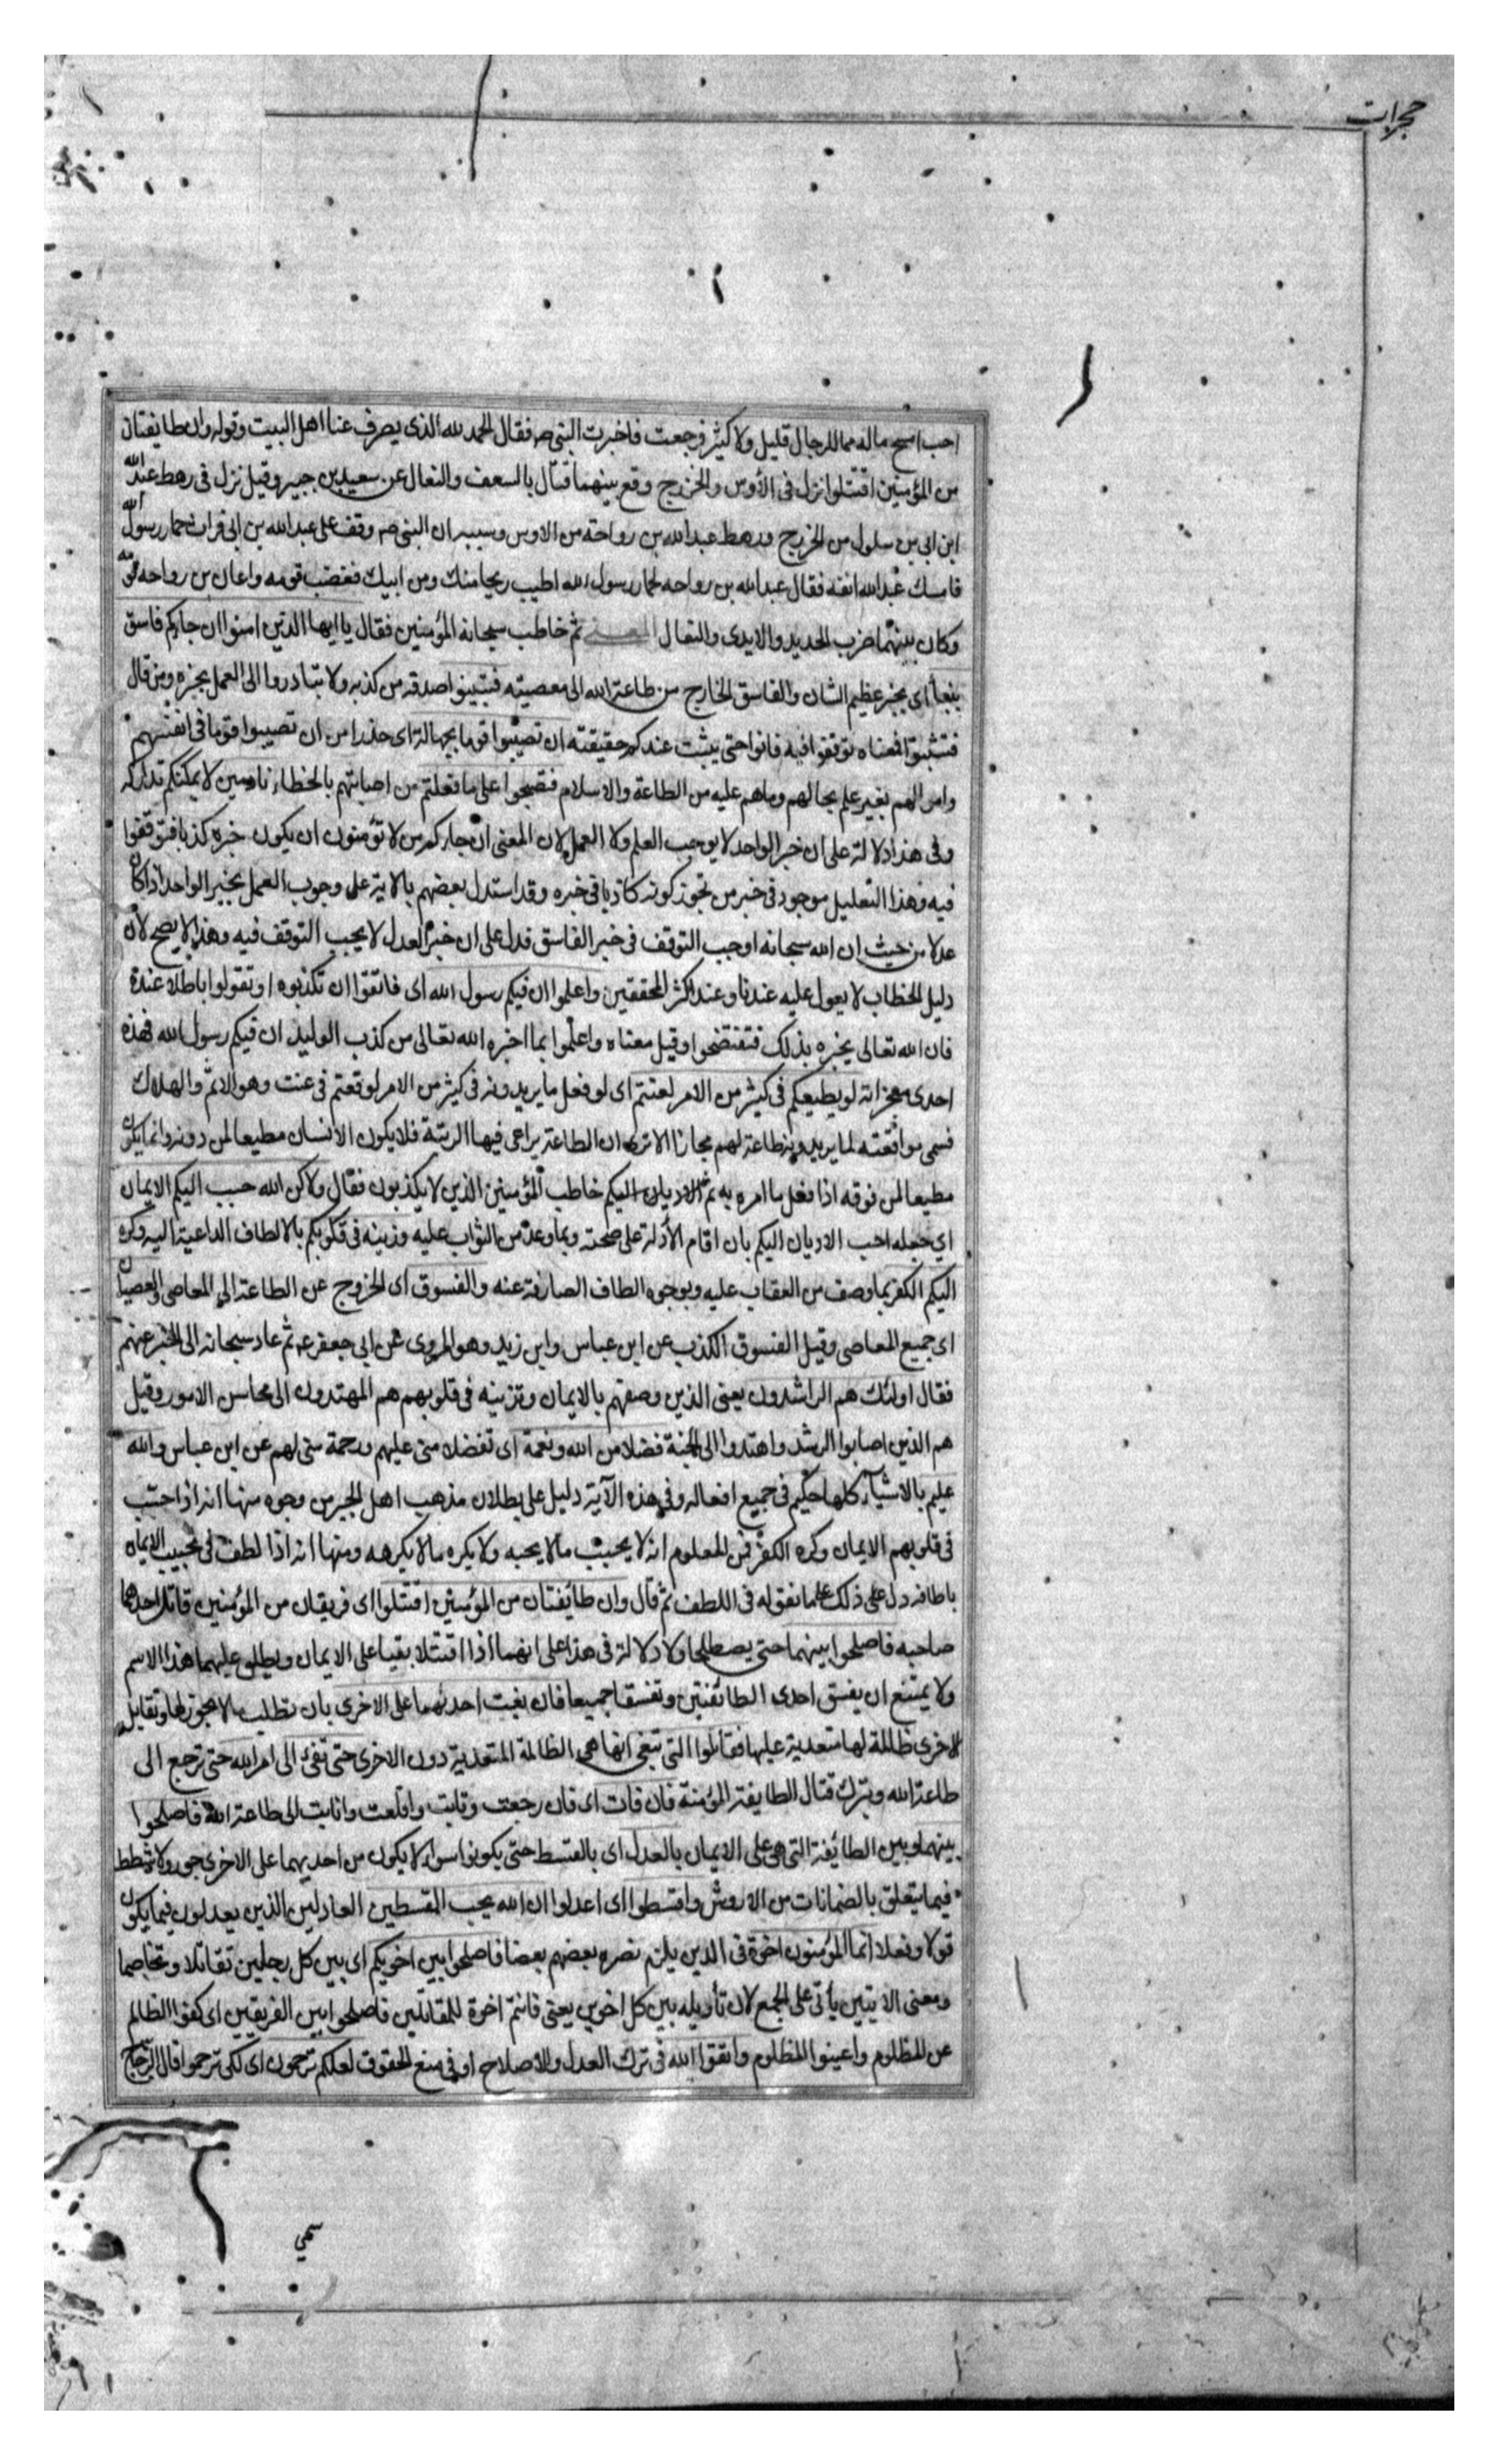 حجرات
احب امسح ماله مما للرجال قليل ولا كثير فرجعت فاخبرت النبى ص فقال الحمد لله الذى يصرف عنا اهل البيت وقوله وان طايفتان
من المؤمنين اقتتلوا نزل فى الأوس والخزرج وقع بينهما قتال بالسعف والنعال عن سعيد بن جبير وقيل نزل فى رهط عبد الله
ابن ابى بن سلول من الخزرج ورهط عبد الله بن رواحة من الاوس وسببه ان النبى ص وقف على عبد الله بن ابى فراث حمار رسول الله
فامسك عبد الله انفه فقال عبد الله بن رواحه لحمار رسول الله اطيب ريحا منك ومن ابيك فغضب قومه واعان بن رواحه قومه
وكان بينهما ضرب الحديد والايدى والنعال المعنى ثم خاطب سبحانه المؤمنين فقال يا ايها الذين امنوا ان جاءكم فاسق
بنبأ اى بخبر عظيم الشان والفاسق الخارج من طاعة الله الى معصيته فتبينوا صدقه من كذبه ولا تبادروا الى العمل بخبره ومن قال
فتثبتوا فمعناه توقفوا فيه فانوا حتى يثبت عندكم حقيقته ان تصيبوا قوما بجهالة اى حذرا من ان تصيبوا قوما فى انفسهم
واموالهم بغير علم بحالهم وماهم عليه من الطاعة والاسلام فتصبحوا على ما فعلتم من اصابتهم بالخطاء نادمين لا يمكنكم تداركه
وفى هذا دلالة على ان خبر الواحد لا يوجب العلم ولا العمل لان المعنى ان جاءكم من لا تؤمنون ان يكون خبره كذبا فتوقفوا
فيه وهذا التعليل موجود فى خبر من تجوز كونه كاذبا فى خبره وقد استدل بعضهم بالاية على وجوب العمل بخبر الواحد اذا كان
عدلا من حيث ان الله سبحانه اوجب التوقف فى خبر الفاسق فدل على ان خبر العدل لا يجب التوقف فيه وهذا لا يصح لان
دليل الخطاب لا يعول عليه عندنا وعند اكثر المحققين واعلموا ان فيكم رسول الله اى فاتقوا ان تكذبوه او تقولوا باطلا عنده
فان الله تعالى يخبره بذلك فتفتضحوا وقيل معناه واعلموا بما اخبره الله تعالى من كذب الوليد ان فيكم رسول الله فهذه
احدى معجزاته لو يطيعكم فى كثير من الامر لعنتم اى لو فعل ما يريدونه فى كثير من الامر لوقعتم فى عنت وهو الاثم والهلاك
فسمى موافقته لما يريدونه طاعة لهم مجازا الا ترى ان الطاعة يراعى فيها الرتبة فلا يكون الانسان مطيعا لمن دونه وانما يكون
مطيعا لمن فوقه اذا فعل ما امره به ثم الاديان اليكم خاطب المؤمنين الذين لا يكذبون فقال ولاكن الله حبب اليكم الايمان
اى جعله احب الاديان اليكم بان اقام الأدلة على صحته وبما وعد من الثواب عليه وزينه فى قلوبكم بالالطاف الداعية اليه وكره
اليكم الكفر بما وصف من العقاب عليه وبوجوه الطاف الصارفة عنه والفسوق اى الخروج عن الطاعة الى المعاصى والعصيان
اى جميع المعاصى وقيل الفسوق الكذب عن ابن عباس وابن زيد وهو المروى عن ابى جعفر ع ثم عاد سبحانه الى الخبر عنهم
فقال اولئك هم الراشدون يعنى الذين وصفهم بالايمان وتزينه فى قلوبهم هم المهتدون الى محاسن الامور وقيل
هم الذين اصابوا الرشد واهتدوا الى الجنة فضلا من الله ونعمة اى تفضلا منى عليهم ورحمة منى لهم عن ابن عباس والله
عليم بالاشياء كلها حكيم فى جميع افعاله وفى هذه الآية دليل على بطلان مذهب اهل الجبر من وجوه منها انه اذا حبب
فى قلوبهم الايمان وكره الكفر فمن المعلوم انه لا يحبب مالا يحبه ولا يكره مالا يكرهه ومنها انه اذا لطف فى تحبيب الايمان
بالطافه دل على ذلك على ما نقوله فى اللطف ثم قال وان طائفتان من المؤمنين اقتتلوا اى فريقان من المؤمنين قاتل احدهما
صاحبه فاصلحوا بينهما حتى يصطلحا ولا دلالة فى هذا على انهما اذا اقتتلا بقيا على الايمان ويطلق عليهما هذا الاسم
ولا يمتنع ان يفسق احدى الطائفتين وتفسقا جميعا فان بغت احدىهما على الاخرى بان تطلب مالا يجوز لها وتقاتل
الاخرى ظالمة لها متعدية عليها فقاتلوا التى تبغى انها هى الظالمة المتعدية دون الاخرى حتى تفئ الى امر الله حتى ترجع الى
طاعة الله وتترك قتال الطايفة المؤمنة فان فاءت اى فان رجعت وتابت واقلعت وانابت الى طاعة الله فاصلحوا
بينهما وبين الطائفة التى هى على الايمان بالعدل اى بالقسط حتى يكونوا سواء لا يكون من احديهما على الاخرى جور ولا شطط
فيما يتعلق بالضمانات من الاروش واقسطوا اى اعدلوا ان الله يحب المقسطين العادلين الذين يعدلون فيما يكون
قولا وفعلا انما المؤمنون اخوة فى الدين يلزم نصره بعضهم بعضا فاصلحوا بين اخويكم اى بين كل رجلين تقاتلا وتخاصما
ومعنى الاثنين يأتى على الجمع لان تأويله بين كل اخوين يعنى فانتم اخوة للمقاتلين فاصلحوا بين الفريقين اى كفوا الظالم
عن المظلوم واعينوا المظلوم واتقوا الله فى ترك العدل والاصلاح او فى منع الحقوق لعلكم ترحمون اى لكى ترحموا قال الزجاج
سمى